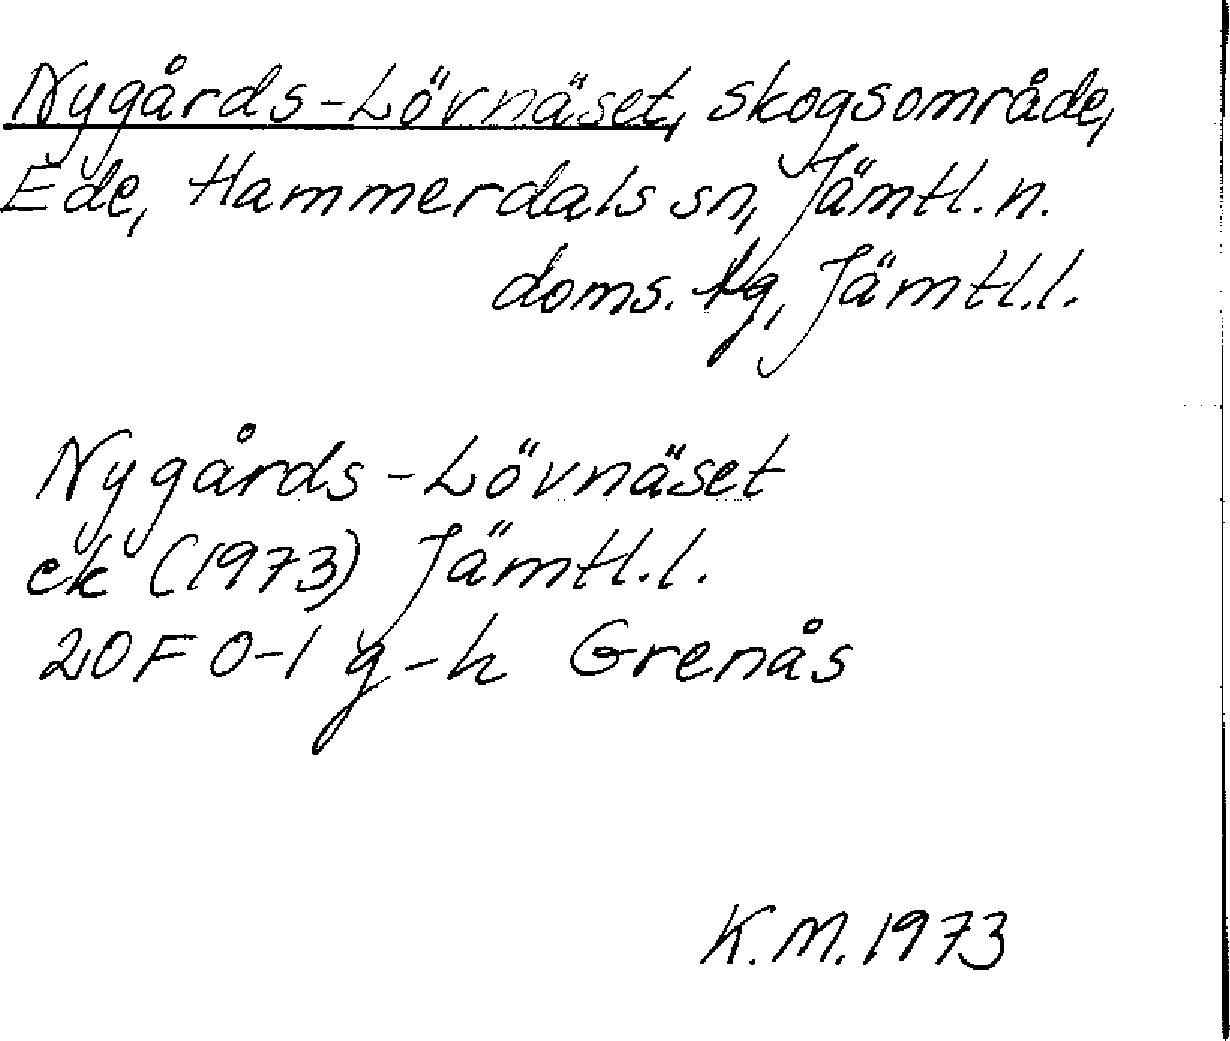 Nygårds-Lövnäset, skogsområde,
Ede, Hammerdals sn, Jämtl. n.
doms. tg, Jämtl. l.
Nygårds-Lövnäset
ek (1973) Jämtl. l.
20F 0-1 g-h Grenås
K. M. 1973